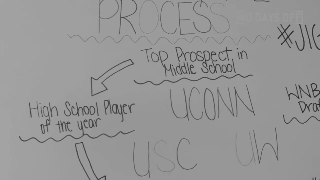 PROCESS
#JIG
Top Prospect in
Middle School
High School Player
of the year
UCONN
WNB
Draf
USC
UW